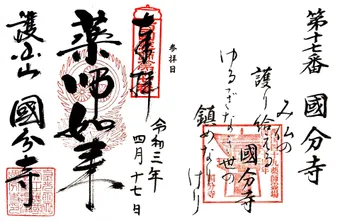 第十七番 國分寺
み仏の
護り給える
國分寺
ゆるぎなき世の
鎮めなりけり
参拝日
令和三年
四月十七日
奉拝
薬師如来
護山
國分寺